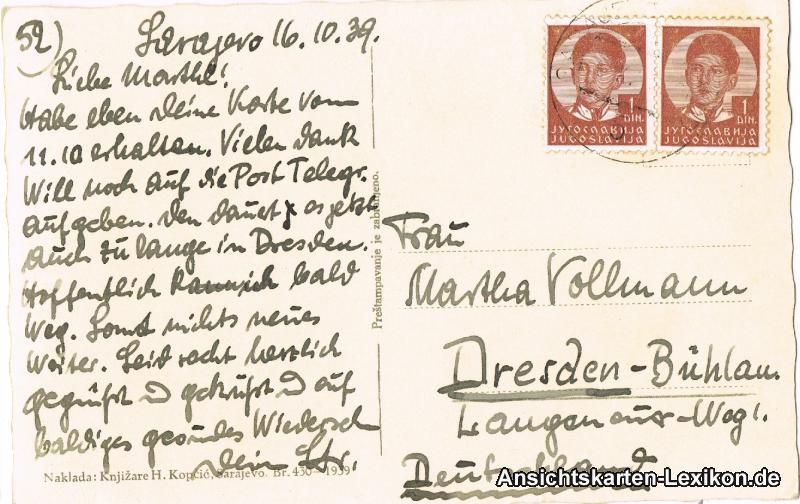 52)
Sarajevo 16.10.39.
Liebe Marthl!
Habe eben deine Karte vom
11.10 erhalten. Vielen Dank
Will noch auf die Post Telegr.
aufgeben. Den dauert es jetzt
auch zu lange in Dresden.
Hoffentlich kann ich bald
Weg. Sonst nichts neues
Weiter. Seid recht herzlich
gegrüßt u geküßt u auf
baldiges gesundes Wiederseh
dein
Naklada: Knjižare H. Kopčić, Sarajevo. Br. 430—1939
Preštampavanje je zabranjeno.
1
DIN.
ЈУГОСЛАВИЈА
JUGOSLAVIJA
1
DIN.
ЈУГОСЛАВИЈА
JUGOSLAVIJA
Frau
Martha Vollmann
Dresden-Bühlau.
Weg 1.
Deutschland
Ansichtskarten-Lexikon.de